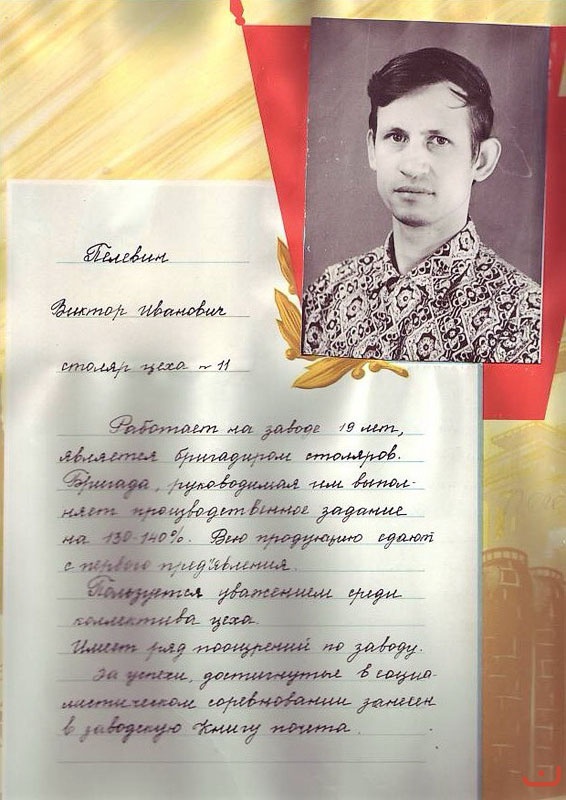 Пелевин
Виктор Иванович
столяр цеха № 11
Работает на заводе 19 лет,
является бригадиром столяров.
Бригада, руководимая им выпол-
няет производственное задание
на 130-140%. Всю продукцию сдают
с первого предъявления.
Пользуется уважением среди
коллектива цеха.
Имеет ряд поощрений по заводу.
За успехи, достигнутые в социа-
листическом соревновании занесен
в заводскую Книгу почета.